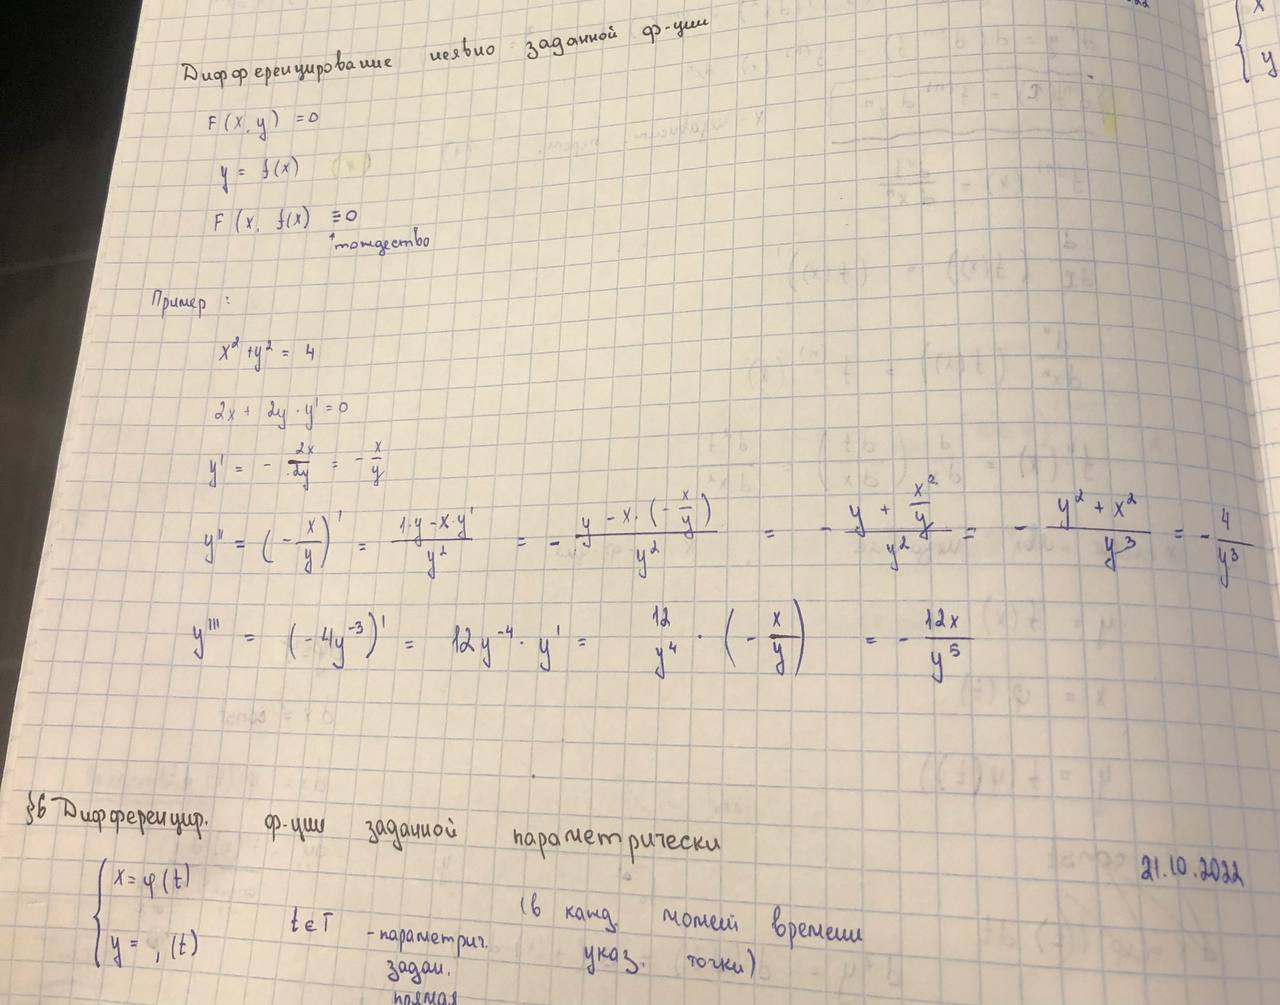 Дифференцирование неявно заданной ф-ции
F(x, y) = 0
y = f(x)
F(x, f(x) ≡ 0
тождество
Пример :
x² + y² = 4
2x + 2y · y' = 0
y' = - 2x/2y = - x/y
y'' = (- x/y)' = (1·y - x·y')/y² = - (y - x·(- x/y))/y² = - (y + x²/y)/y² = - (y² + x²)/y³ = - 4/y³
y''' = (-4y⁻³)' = 12y⁻⁴ · y' = 12/y⁴ · (- x/y) = - 12x/y⁵
§6 Дифференцир. ф-ции заданной параметрически
21.10.2022
{ x = φ(t)
y = (t) t ∈ T - параметрич. задан. прямая
(в кажд. момент времени указ. точки)
x
y